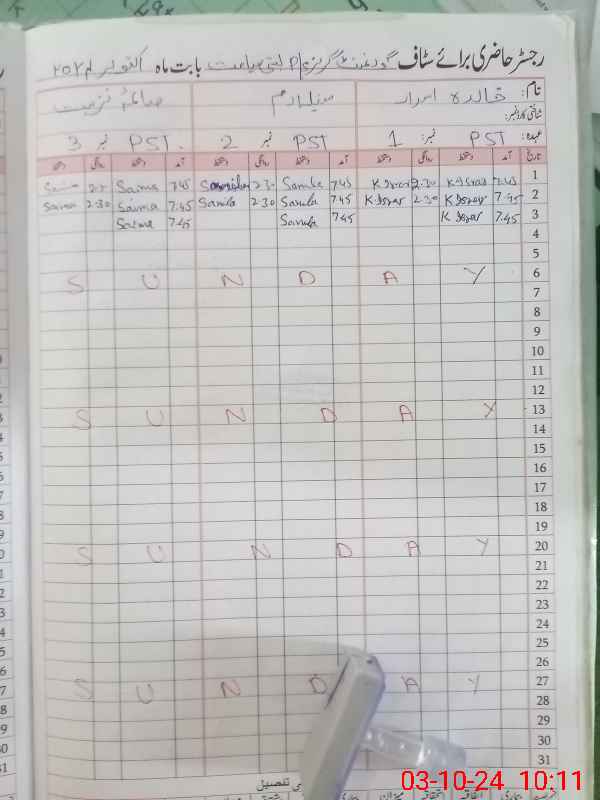 رجسٹر حاضری برائے سٹاف گورنمنٹ گرلز بابت ماہ اکتوبر ۲۰۲۴
نام: خالدہ اسرار
شناختی کارڈ نمبر:
عہدہ: PST نمبر: 1 PST نمبر 2 PST. نمبر 3
تاریخ آمد دستخط روانگی دستخط آمد دستخط روانگی دستخط آمد دستخط روانگی دستخط
1 7.45 K Israr 2.30 K Israr 7.45 Sanila 2.30 7.45 Saima
2 7.45 K Israr 2.30 K Israr 7.45 Sanila 2.30 Sanila 7.45 Saima 2.30 Saima
3 7.45 K Israr 7.45 Sanila 7.45 Saima
4
5
S U N D A Y 6
7
8
9
10
11
12
S U N D A Y 13
14
15
16
17
18
19
S U N D A Y 20
21
22
23
24
25
26
S U N D A Y 27
28
29
30
31
03-10-24 10:11